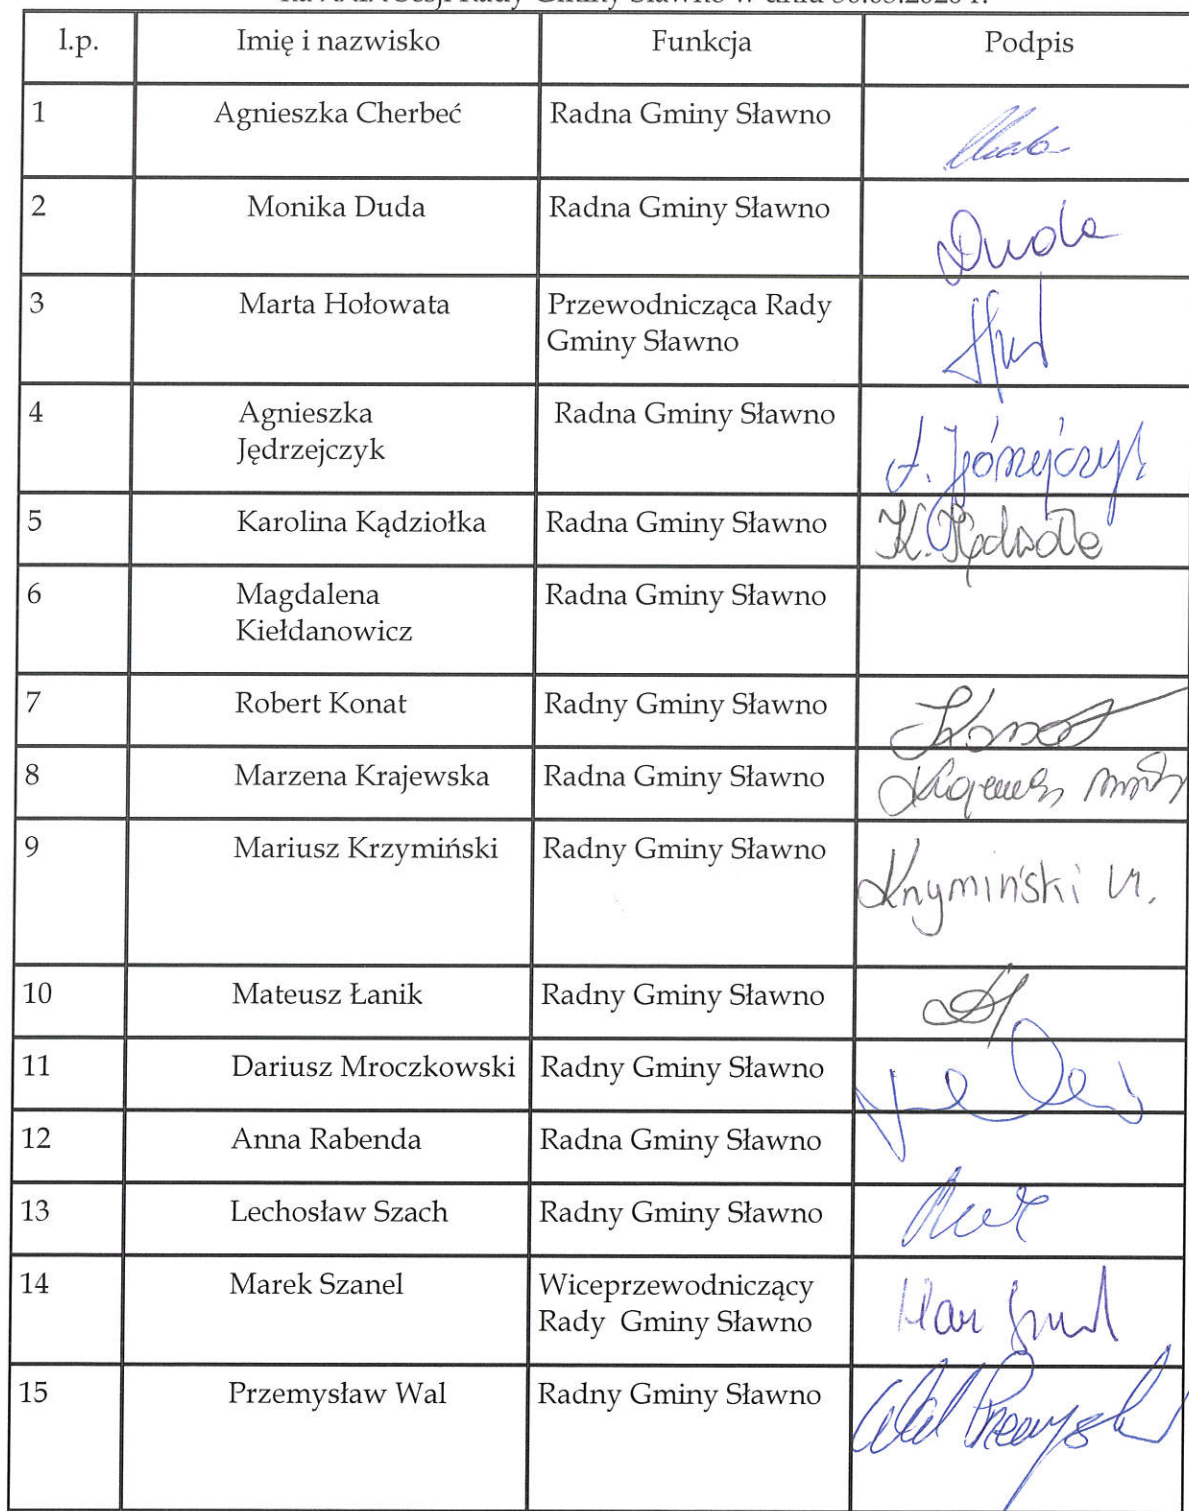 Sesji Rady Gminy Sławno w dniu
l.p. Imię i nazwisko Funkcja Podpis
1 Agnieszka Cherbeć Radna Gminy Sławno
2 Monika Duda Radna Gminy Sławno Duda
3 Marta Hołowata Przewodnicząca Rady
Gminy Sławno
4 Agnieszka Radna Gminy Sławno
Jędrzejczyk
5 Karolina Kądziołka Radna Gminy Sławno
6 Magdalena Radna Gminy Sławno
Kiełdanowicz
7 Robert Konat Radny Gminy Sławno
8 Marzena Krajewska Radna Gminy Sławno
9 Mariusz Krzymiński Radny Gminy Sławno Krzymiński M.
10 Mateusz Łanik Radny Gminy Sławno
11 Dariusz Mroczkowski Radny Gminy Sławno
12 Anna Rabenda Radna Gminy Sławno
13 Lechosław Szach Radny Gminy Sławno
14 Marek Szanel Wiceprzewodniczący
Rady Gminy Sławno
15 Przemysław Wal Radny Gminy Sławno